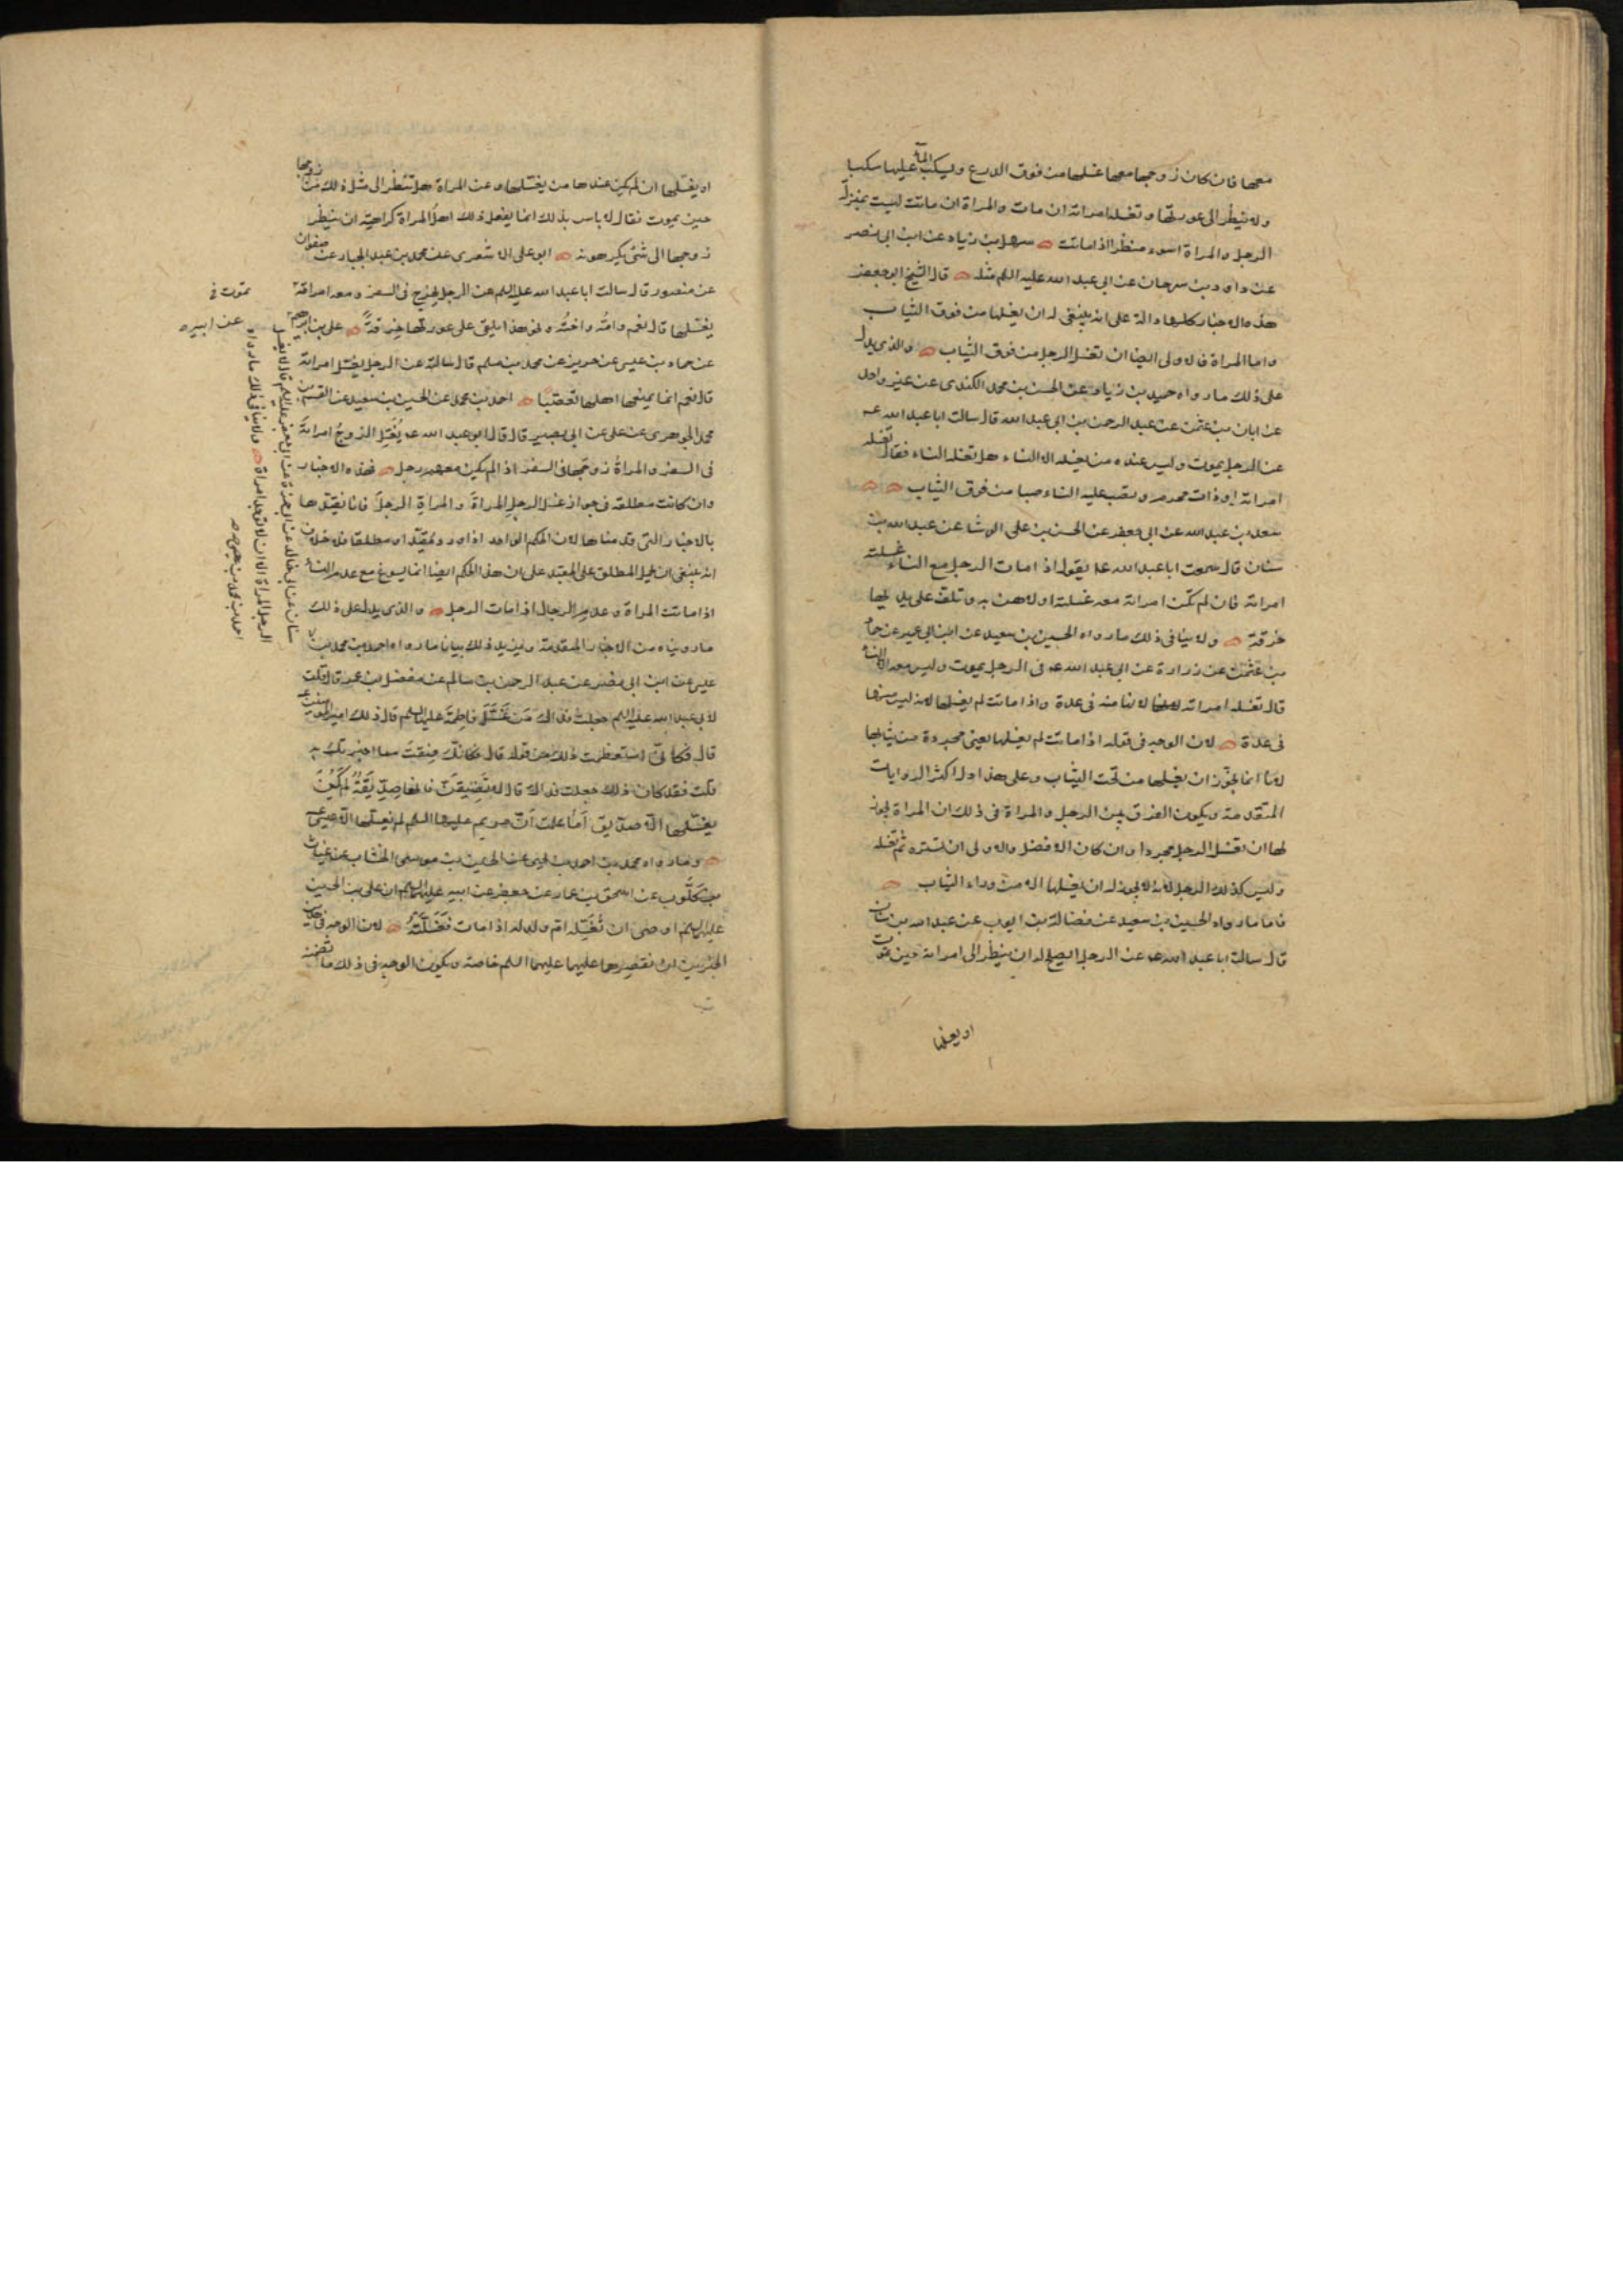 معها فان كان زوجها معها غسلها من فوق الدرع ويسكب الماء عليها سكبا
ولا ينظر الى عورتها وتغسله امراته ان مات والمراة ان ماتت ليست بمنزلة
الرجل والمراة اسوء منظرا اذا ماتت سهل بن زياد عن ابن ابى نصر
عن داود بن سرحان عن ابى عبد الله عليه السلم مثله قال الشيخ ابو جعفر
هذه الاخبار كلها دالة على انه ينبغى له ان يغسلها من فوق الثياب
واما المراة فالاولى ايضا ان تغسل الرجل من فوق الثياب والذى يدل
على ذلك ما رواه حميد بن زياد عن الحسن بن محمد الكندى عن غير واحد
عن ابان بن عثمن عن عبد الرحمن بن ابى عبد الله قال سالت ابا عبد الله عه
عن الرجل يموت وليس عنده من يغسله الا النساء هل تغسله النساء فقال تغسله
امراته او ذات محرمه وتصب عليه النساء صبا من فوق الثياب
سعد بن عبد الله عن ابى جعفر عن الحسن بن على الوشا عن عبد الله بن
سنان قال سمعت ابا عبد الله عه يقول اذا مات الرجل مع النساء غسلته
امراته فان لم تكن امراته معه غسلته اولاهن به وتلف على يديها
خرقة ولا ينافى ذلك ما رواه الحسين بن سعيد عن ابن ابى عمير عن حماد
بن عثمن عن زرارة عن ابى عبد الله عه فى الرجل يموت وليس معه الا النساء
قال تغسله امراته لانها منه فى عدة واذا ماتت لم يغسلها لانه ليس منها
فى عدة لان الوجه فى قوله اذا ماتت لم يغسلها يعنى مجردة من ثيابها
لانا انما نجوز ان يغسلها من تحت الثياب وعلى هذا دل اكثر الروايات
المتقدمة ويكون الفرق بين الرجل والمراة فى ذلك ان المراة يجوز
لها ان تغسل الرجل مجردا وان كان الافضل والاولى ان تستره ثم تغسله
وليس كذلك الرجل لانه لا يجوز له ان يغسلها الا من وراء الثياب
فاما ما رواه الحسين بن سعيد عن فضالة بن ايوب عن عبد الله بن سنان
قال سالت ابا عبد الله عه عن الرجل ايصلح له ان ينظر الى امراته حين تموت
او يغسلها
او يغسلها ان لم يكن عندها من يغسلها وعن المراة هل تنظر الى مثل ذلك من زوجها
حين يموت فقال لا باس بذلك انما يفعل ذلك اهل المراة كراهية ان ينظر
زوجها الى شئ يكرهونه ابو على الاشعرى عن محمد بن عبد الجبار عن صفوان
عن منصور قال سالت ابا عبد الله عليه السلم عن الرجل يخرج فى السفر ومعه امراته
يغسلها قال نعم وامه واخته ونحو هذا يلقى على عورتها خرقة على بن ابرهيم
عن حماد بن عيسى عن حريز عن محمد بن مسلم قال سالته عن الرجل يغسل امراته
قال نعم انما يمنعها اهلها تعصبا احمد بن محمد عن الحسين بن سعيد عن القسم بن
محمد الجوهرى عن على عن ابى بصير قال قال ابو عبد الله عه يغسل الزوج امراته
فى السفر والمراة زوجها فى السفر اذا لم يكن معهم رجل فهذه الاخبار
وان كانت مطلقة فى جواز غسل الرجل المراة والمراة الرجل فانا نقيدها
بالاخبار التى قدمناها لان الحكم الواحد اذا ورد مقيدا ومطلقا فلا خلاف
انه ينبغى ان يحمل المطلق على المقيد على ان هذا الحكم ايضا انما يسوغ مع عدم النساء
اذا ماتت المراة وعدم الرجال اذا مات الرجل والذى يدل على ذلك
ما رويناه من الاخبار المتقدمة ويزيد ذلك بيانا ما رواه احمد بن محمد بن
عيسى عن ابن ابى نصر عن عبد الرحمن بن سالم عن مفضل بن عمر قال قلت
لابى عبد الله عليه السلم جعلت فداك من غسل فاطمة عليها السلم قال ذلك امير المؤمنين عه
قال فكانى استعظمت ذلك من قوله قال فكانك ضقت مما اخبرتك به
قلت فقد كان ذلك جعلت فداك قال لا تضيقن فانها صديقة لم يكن
يغسلها الا صديق اما علمت ان مريم عليها السلم لم يغسلها الا عيسى عه
وما رواه محمد بن احمد بن يحيى عن الحسن بن موسى الخشاب عن غياث
بن كلوب عن اسحق بن عمار عن جعفر عن ابيه عليهما السلم ان على بن الحسين
عليهما السلم اوصى ان تغسله ام ولد له اذا مات فغسلته لان الوجه فى هذين
الخبرين ان نقصرهما عليهما عليهما السلم خاصة ويكون الوجه فى ذلك ما تضمنه
تموت فى
عن ابيه
سنان عن ابى خالد عن ابى حمزة عن ابى جعفر عليه السلم قال لا يغسل
الرجل المراة الا ان لا توجد امراة ولا ينافى ذلك ما رواه
احمد بن محمد بن عيسى